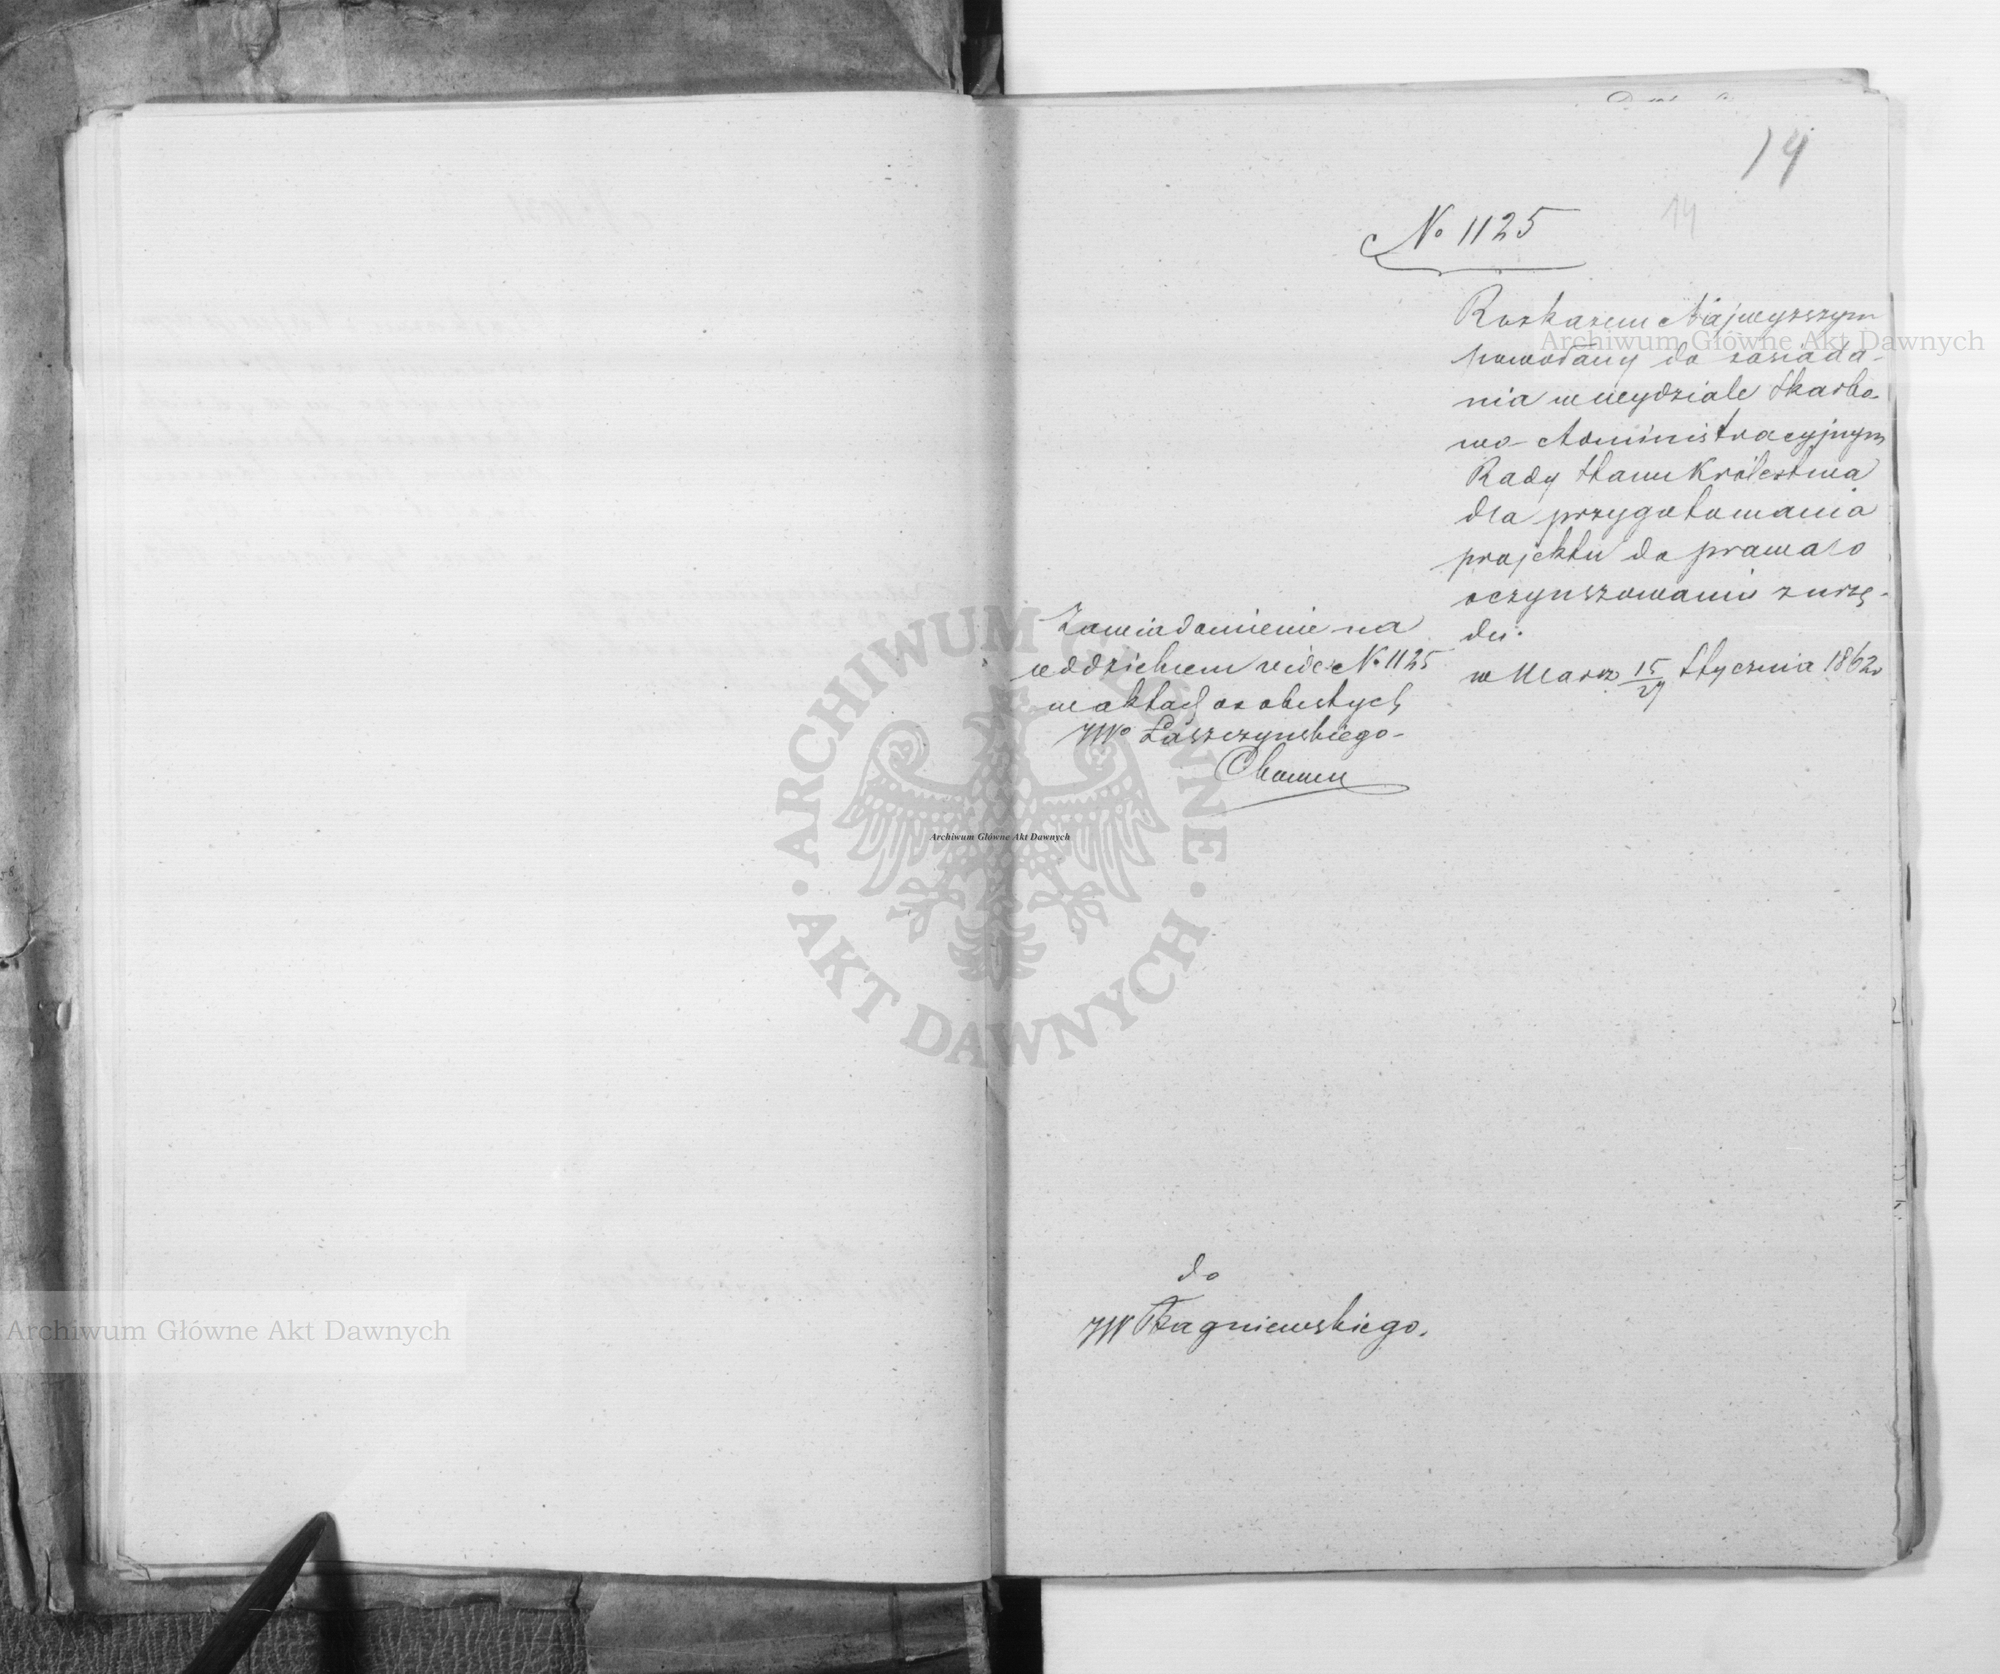 14
14
No 1125
Rozkazem Najwyższym
powołany do zasiada-
nia w wydziale Skarbo-
wo-Administracyjnym
Rady Stanu Królestwa
dla przygotowania
projektu do prawa o
oczynszowaniu z urzę-
du.
w Warsz 15/27 Stycznia 1862
Zawiadomienie na
oddzielnem vide No 1125
w aktach osobistych
JWo Łaszczyńskiego-
do
JW Bagniewskiego.
Archiwum Główne Akt Dawnych
Archiwum Główne Akt Dawnych
Archiwum Główne Akt Dawnych
ARCHIWUM GŁÓWNE
· AKT DAWNYCH ·